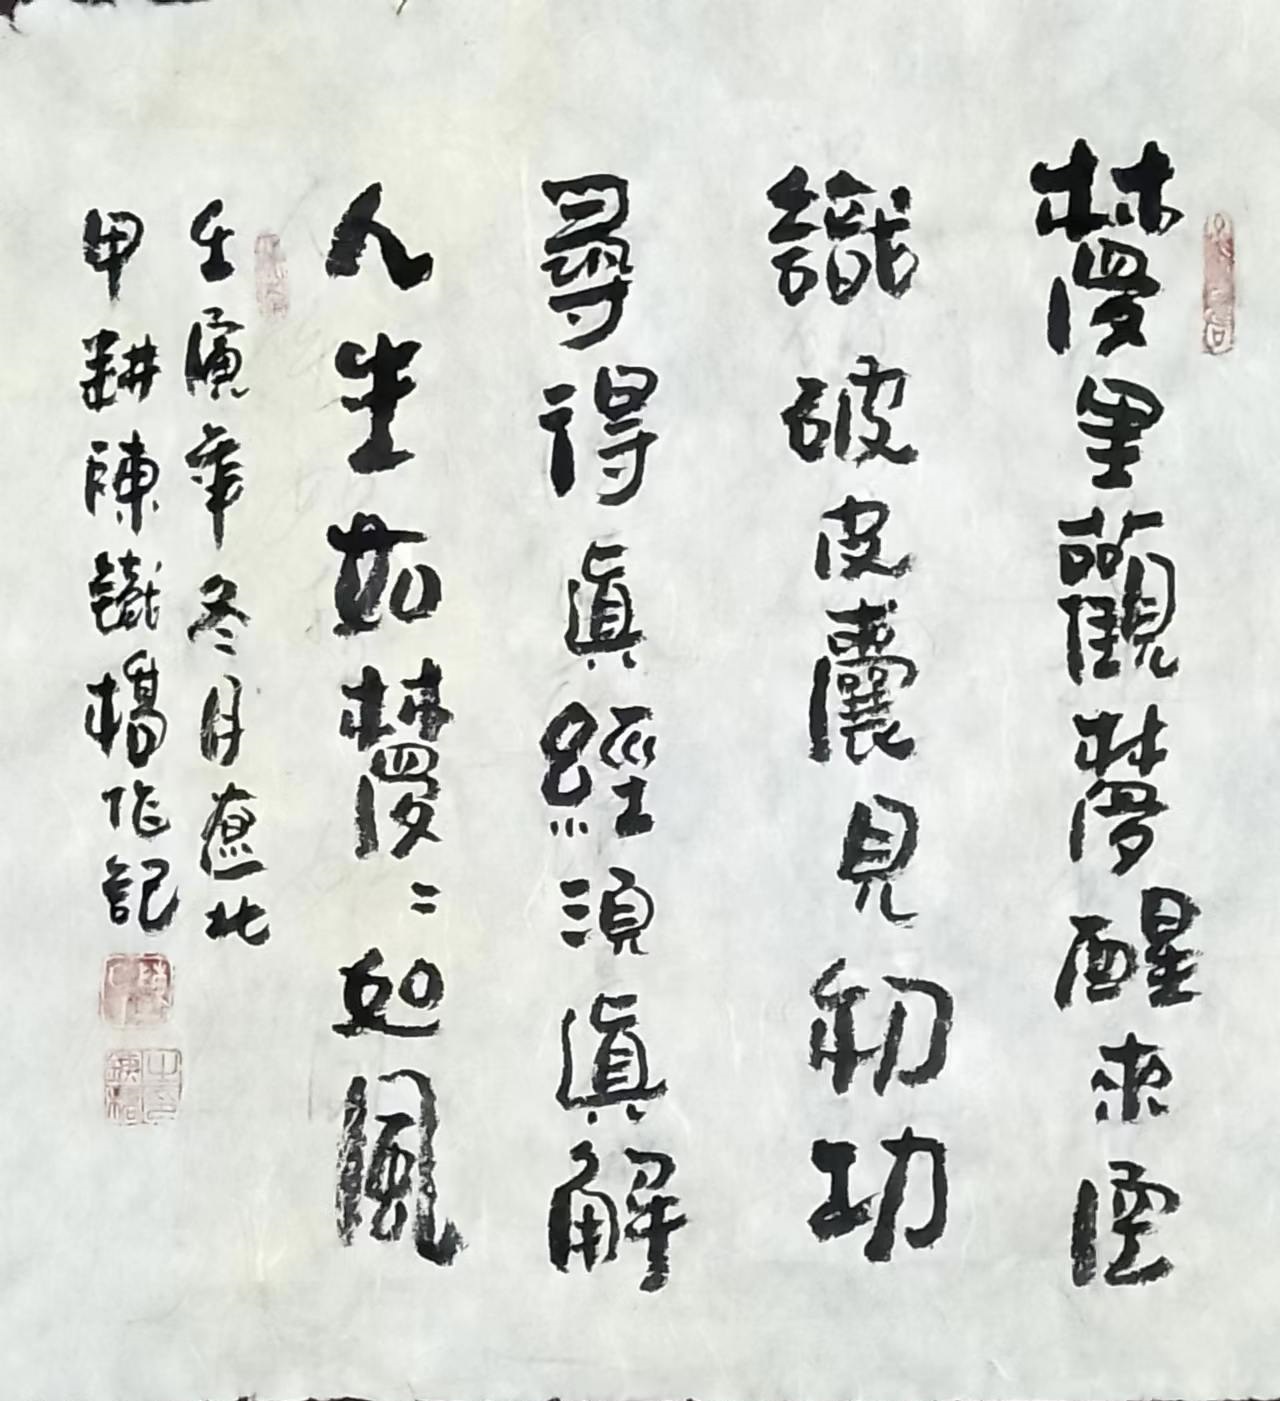 夢里觀夢醒來空
識破皮囊見初功
尋得眞經須眞解
人生如夢々如風
壬寅年冬月燕北
甲耕陳鐵楊作記